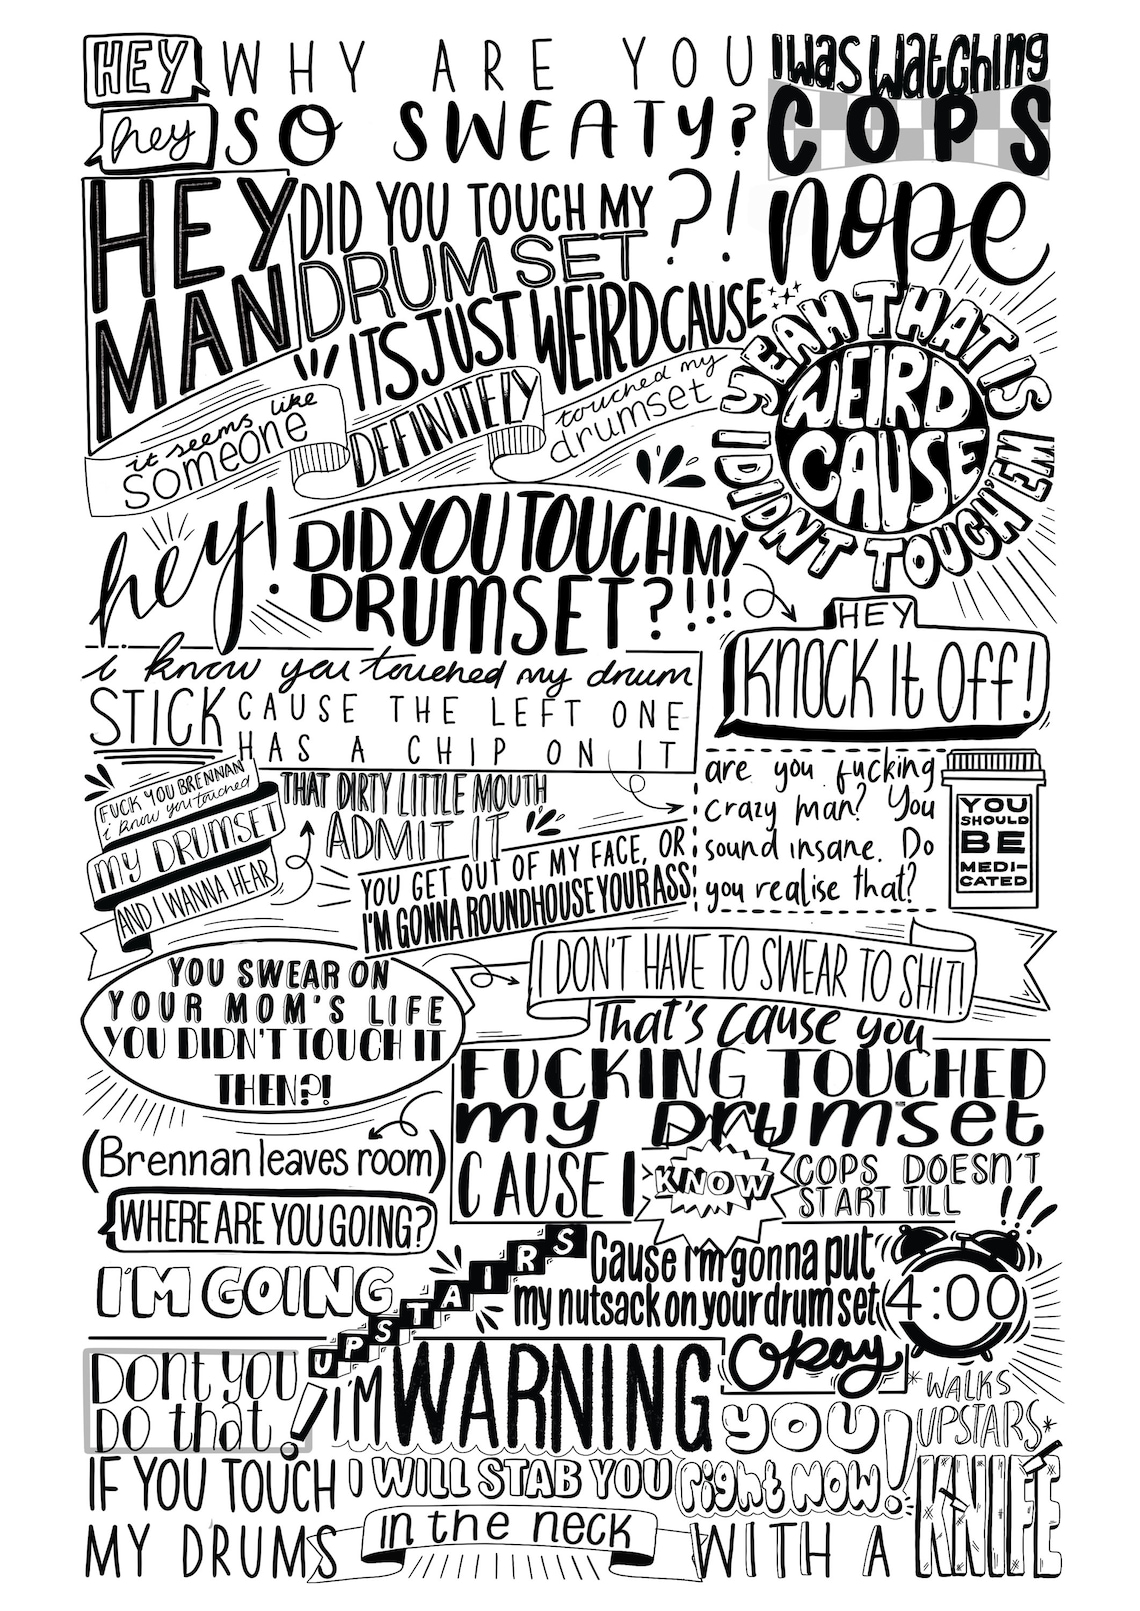 HEY WHY ARE YOU
hey SO SWEATY?
I was watching
COPS
HEY
MAN
DID YOU TOUCH MY
DRUM SET ?!
nope
ITS JUST WEIRD CAUSE
it seems like
someone
DEFINITELY
touched my
drumset
YEAH THAT IS
WEIRD
CAUSE
I DIDNT TOUCH 'EM
hey! DID YOU TOUCH MY
DRUMSET?!!!
HEY
KNOCK It OFF!
i know you touched my drum
STICK CAUSE THE LEFT ONE
HAS A CHIP ON IT
are you fucking
crazy man? You
sound insane. Do
you realise that?
YOU
SHOULD
BE
MEDI-
CATED
FUCK YOU BRENNAN
i know you touched
MY DRUMSET
AND I WANNA HEAR
THAT DIRTY LITTLE MOUTH
ADMIT IT
YOU GET OUT OF MY FACE, OR
I'M GONNA ROUNDHOUSE YOUR ASS
YOU SWEAR ON
YOUR MOM'S LIFE
YOU DIDN'T TOUCH IT
THEN?!
I DON'T HAVE TO SWEAR TO SHIT!
That's cause you
FUCKING TOUCHED
my Drumset
CAUSE I KNOW COPS DOESN'T
START TILL
4:00
(Brennan leaves room)
WHERE ARE YOU GOING?
I'M GOING
UPSTAIRS
Cause i'm gonna put
my nutsack on your drum set
Okay
DONT YOU
DO that!
I'M WARNING
YOU!
*WALKS
UPSTARS*
IF YOU TOUCH
MY DRUMS
I WILL STAB YOU
in the neck
right NOW!
WITH A KNIFE